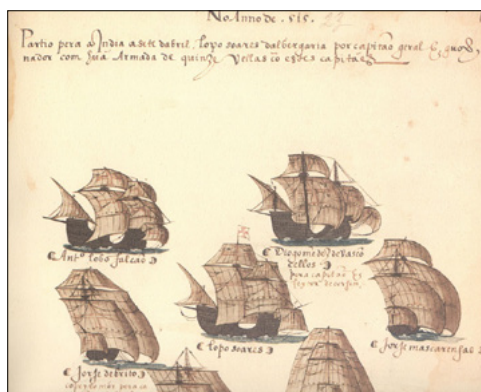 No Anno de . 515.
Partio pera a India a sete dabril, lopo soares dalbergaria por capitão geral E, guover,
nador com hũa Armada de quinze Vellas co estes capitães
Antº lobo falcão
Diogo mẽdez de Vasco
cellos
pera capitão
lopo soares
Jorje mascarenhas
Jorje de brito